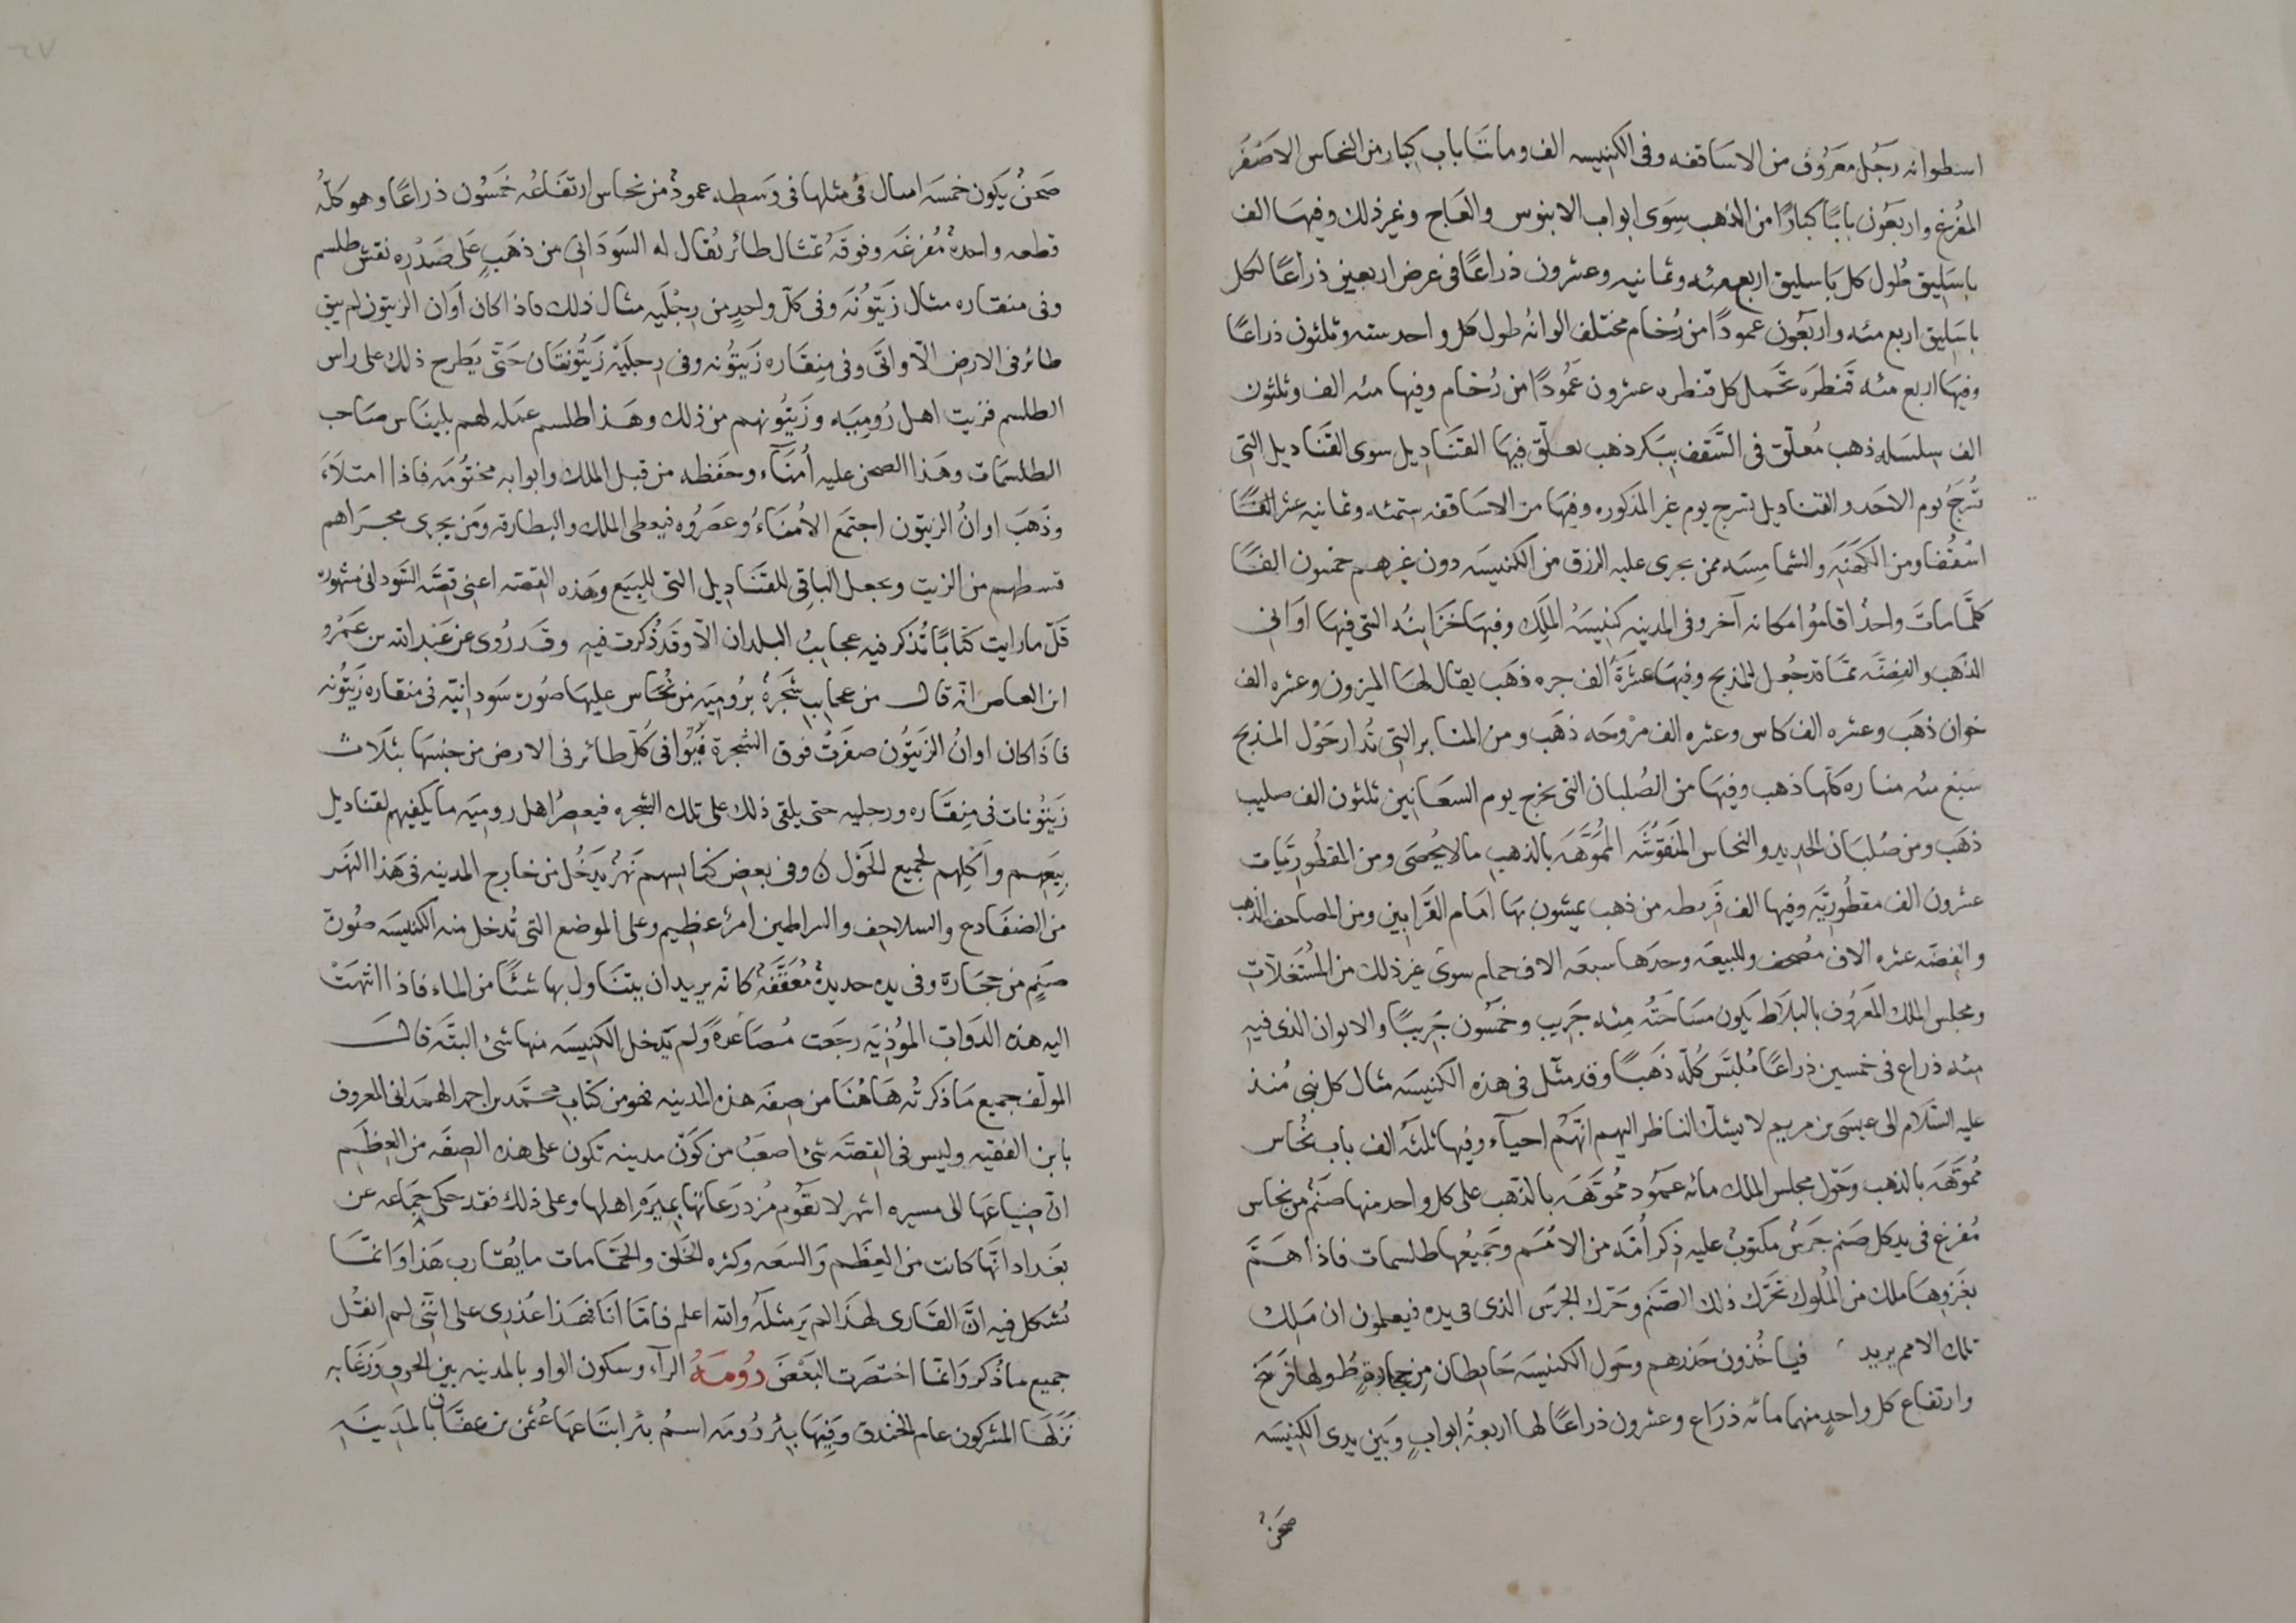 اسطوانه رَجُل معَرُوف من الاسَاقفه وفى الكنيسه الف ومائتَا باب كِبار من النحاس الاصَفَر
المُفرغ واربَعُون بابًا كبارًا من الذهب سِوَى ابواب الابنوس والعَاج وغير ذلك وفيهَا الف
باسَلِيق طُول كل بَاسليق اربع مئه وثمانيه وعشرون ذراعًا فى عَرض اربعين ذراعًا لكل
باسَلِيق اربع مئه واربَعُون عمودًا من رُخام مختلف الوانهُ طول كل واحد سته وثلثون ذراعًا
وفيهَا اربع مئه قَنطرَه تحَمل كل قنطره عشرون عَمُودًا من رُخام وفيها مئه الف وثلثون
الف سِلسَله ذهب مُعلّق فى السَّقف ببَكر ذهب تعلّق فِيهَا القنَادِيل سوى القَناديل التى
تُسرَجُ يوم الاحَد والقناديل تسرج يوم غير المذكوره وفيهَا من الاسَاقفه ستمئه وثمانيه عشر الفًا
اسْقُفا ومن الكهَنَه والشمامِسَه ممن يجرى عليه الرزق من الكنيسَه دون غيرهم خمسون الفًا
كلّمَا ماتَ واحدٌ اقامُوا مكانه آخر وفى المدينه كنيسَهُ الملِك وفيهَا خزَاينُه التى فيهَا اوَانى
الذَهَب والفِضَّه ممّا قد جُعل للمَذبح وفيهَا عشَرَة الف جره ذهَب يقال لهَا الميزون وعشره الف
خوان ذهَب وعشره الف كاس وعشره الف مرْوحَه ذهَب ومن المنابر التى تُدار حَوْل المذبح
سَبْع مئه مناره كلّها ذهب وفيهَا من الصُلبان التى يخرج يوم السعَانِين ثلثون الف صليب
ذهَب ومن صُلبَان الحديد والنحاس المنَقُوشَه المُمَوَّهَه بالذهب مالا يُحصَى ومن المقطُوريّات
عشرون الف مقطُورِيَّه وفيها الف قَربطه من ذهب يمشون بهَا امَام القَرابين ومن المصاحف الذهب
والفضّه عشره الاف مُصحف وللبيعَه وحدَها سبعَه الاف حمام سوى غير ذلك من المُسْتَغلّات
ومجلس الملك المعَرُوف بالبلَاط يكون مسَاحَتُه مِئه جَرِيب وخَمسُون جَريبًا والايوان الذى فيهِ
مئه ذراع فى خمسين ذراعًا مُلبَّس كُلّه ذَهَبًا وقد مثّل فى هذه الكنيسَه مثال كل نبى مُنذ
عليه السّلام الى عيسَى بن مريم لا يشكّ الناظر اليهم انّهَم احيآء وفيها ثلثهُ الف باب نُحاس
مُموّهَه بالذهب وحَوْل مجلس الملك مائه عمَود مُموّهَه بالذهب على كل واحد منها صنَم من نحاس
مُفرغ فى يد كل صنم جرَس مكتوبٌ عليه ذِكر أُمّه من الامَم وجَميعُها طلسمات فاذا همَّ
بغزوِهَا ملك من المُلوك تحَرّك ذلك الصَّنم وحَرّك الجرَسَ الذى فى يده فيعلمون ان مَلِك
تلك الامم يريد فياخُذون حَذرهم وحَول الكنيسَه حَايطان من حجارةٍ طُولها فَرَسَخ
وارتفاع كل واحدٍ منهما مائه ذرَاع وعشرون ذراعًا لها اربعهُ ابوابٍ وبَين يدى الكِنيسَه
صَحنٌ
صَحنٌ يَكون خمسَه اميال فى مثلها فى وَسَطِه عمودٌ من نحاس ارتفَاعُه خَمَسُون ذراعًا وهو كَلّهُ
قطعه واحدةٌ مُفرغَه وفوقَهُ تمثال طائر يُقال له السَودَانى من ذهَبٍ على صَدْرِه نقش طلسم
وفى منقاره مثال زَيَتوُنَه وفى كلّ واحدٍ من رِجْلَيه مثال ذلك فاذا كان اَوَان الزيتون لم يبق
طائر فى الارض الّا واتَى وفى مِنِقَاره زَيتُونه وفى رِجلَيْه زَيتُونتَان حَتّى يَطرح ذلك على راس
الطلسم فزيت اهل رُومِيَه وزَيتُونهم من ذلك وهَذا طلسم عمَله لهم بليناس صَاحب
الطلسَمات وهَذا الصحن عليه اُمنَآء وحَفَظه من قبل الملك وابوابه مختُومَه فاذا امتلاَءَ
وذَهَبَ اوانُ الزيتون اجتمَع الاُمنَاءُ وعصَرُوه فيعطى الملك والبطارقه ومَن يجرى مجرَاهم
قسطهم من الزيت ويجعل الباقى للقنَاديل التى للبِيَع وهَذه القصّه اعنى قصّه السَودانى مشهوره
قلّ ما رايت كتابًا تُذكر فيه عجايبُ البلدان الّا وقَد ذُكرت فيهِ وقَد رُوى عن عَبْد الله بن عَمْرو
ابن العاص انّه قال من عجايبِ شَجرةٌ برُومِيَه من نُحاس عليهَا صوُره سَودانيّه فى منقاره زَيتُونه
فاذَا كان اوانُ الزَيتُون صفَرتْ فوق الشجرة فَيُوافى كُلّ طائر فى الارض من جنسهَا بثلَاث
زَيتُونات فى مِنِقَاره ورجليه حتى يلقى ذلك على تلك الشجره فيعصرُ اهل رومِيَه ما يكفيهم لقناديل
بِيَعِهم واَكلِهم لجميع الحَول ن وفى بعض كنايسهم نَهرٌ يدَخُل من خارج المدينه فى هَذا النهَر
من الضفَادع والسلاحف والسراطين امرٌ عظيم وعلى الموضع التى تُدخل منه الكنيسَه صُورة
صنَمٍ من حجَارة وفى يده حديدةٌ مُعَقّفَة كانه يريد ان يتناول بها شئًا من الماء فاذا انتهَتْ
اليه هذه الدَوابّ المؤذيَه رجَعت مُصَاعدةً وَلم يَدخل الكنِيسَه منها شئ البتّه قال
المولّف جميع مَا ذكَرتُه هَاهُنَا من صِفَه هذه المدينه فهو من كتاب محمّد بن احمد الهمدانى المعروف
بابن الفقيه وليس فى القصّه شئٌ اصعَبُ من كَوَن مدينه تكون على هذه الصِفَه من العِظَم
انّ ضياعَهَا الى مسيره اشهر لا تقُوم مُزدَرَعَاتها بميَرَهِ اهلها وعلى ذلك فقد حكى جَماعه عن
بغَداد انّهَا كانت من العِظَم وَالسعَه وكثره الخَلق والحَمّامات ما يُقارب هَذا وَانمّا
يُشكل فيه انَّ القَارى لهَذا لم يَر مثلَه والله اعلم فامّا انَا فهَذا عُذرى على انَّنى لم انقُل
جميع ما ذُكر وَانمّا اختصَرت البَعْضَ رُومَهُ الرآء وسكون الواو بالمدينه بين الجرفِ وَزَغابه
نَزلهَا المشركون عام الخَندق وَفِيهَا بِئر رُومَه اسمُ بئر ابتَاعهَا عُثمن بن عفّان بالمدَينَه